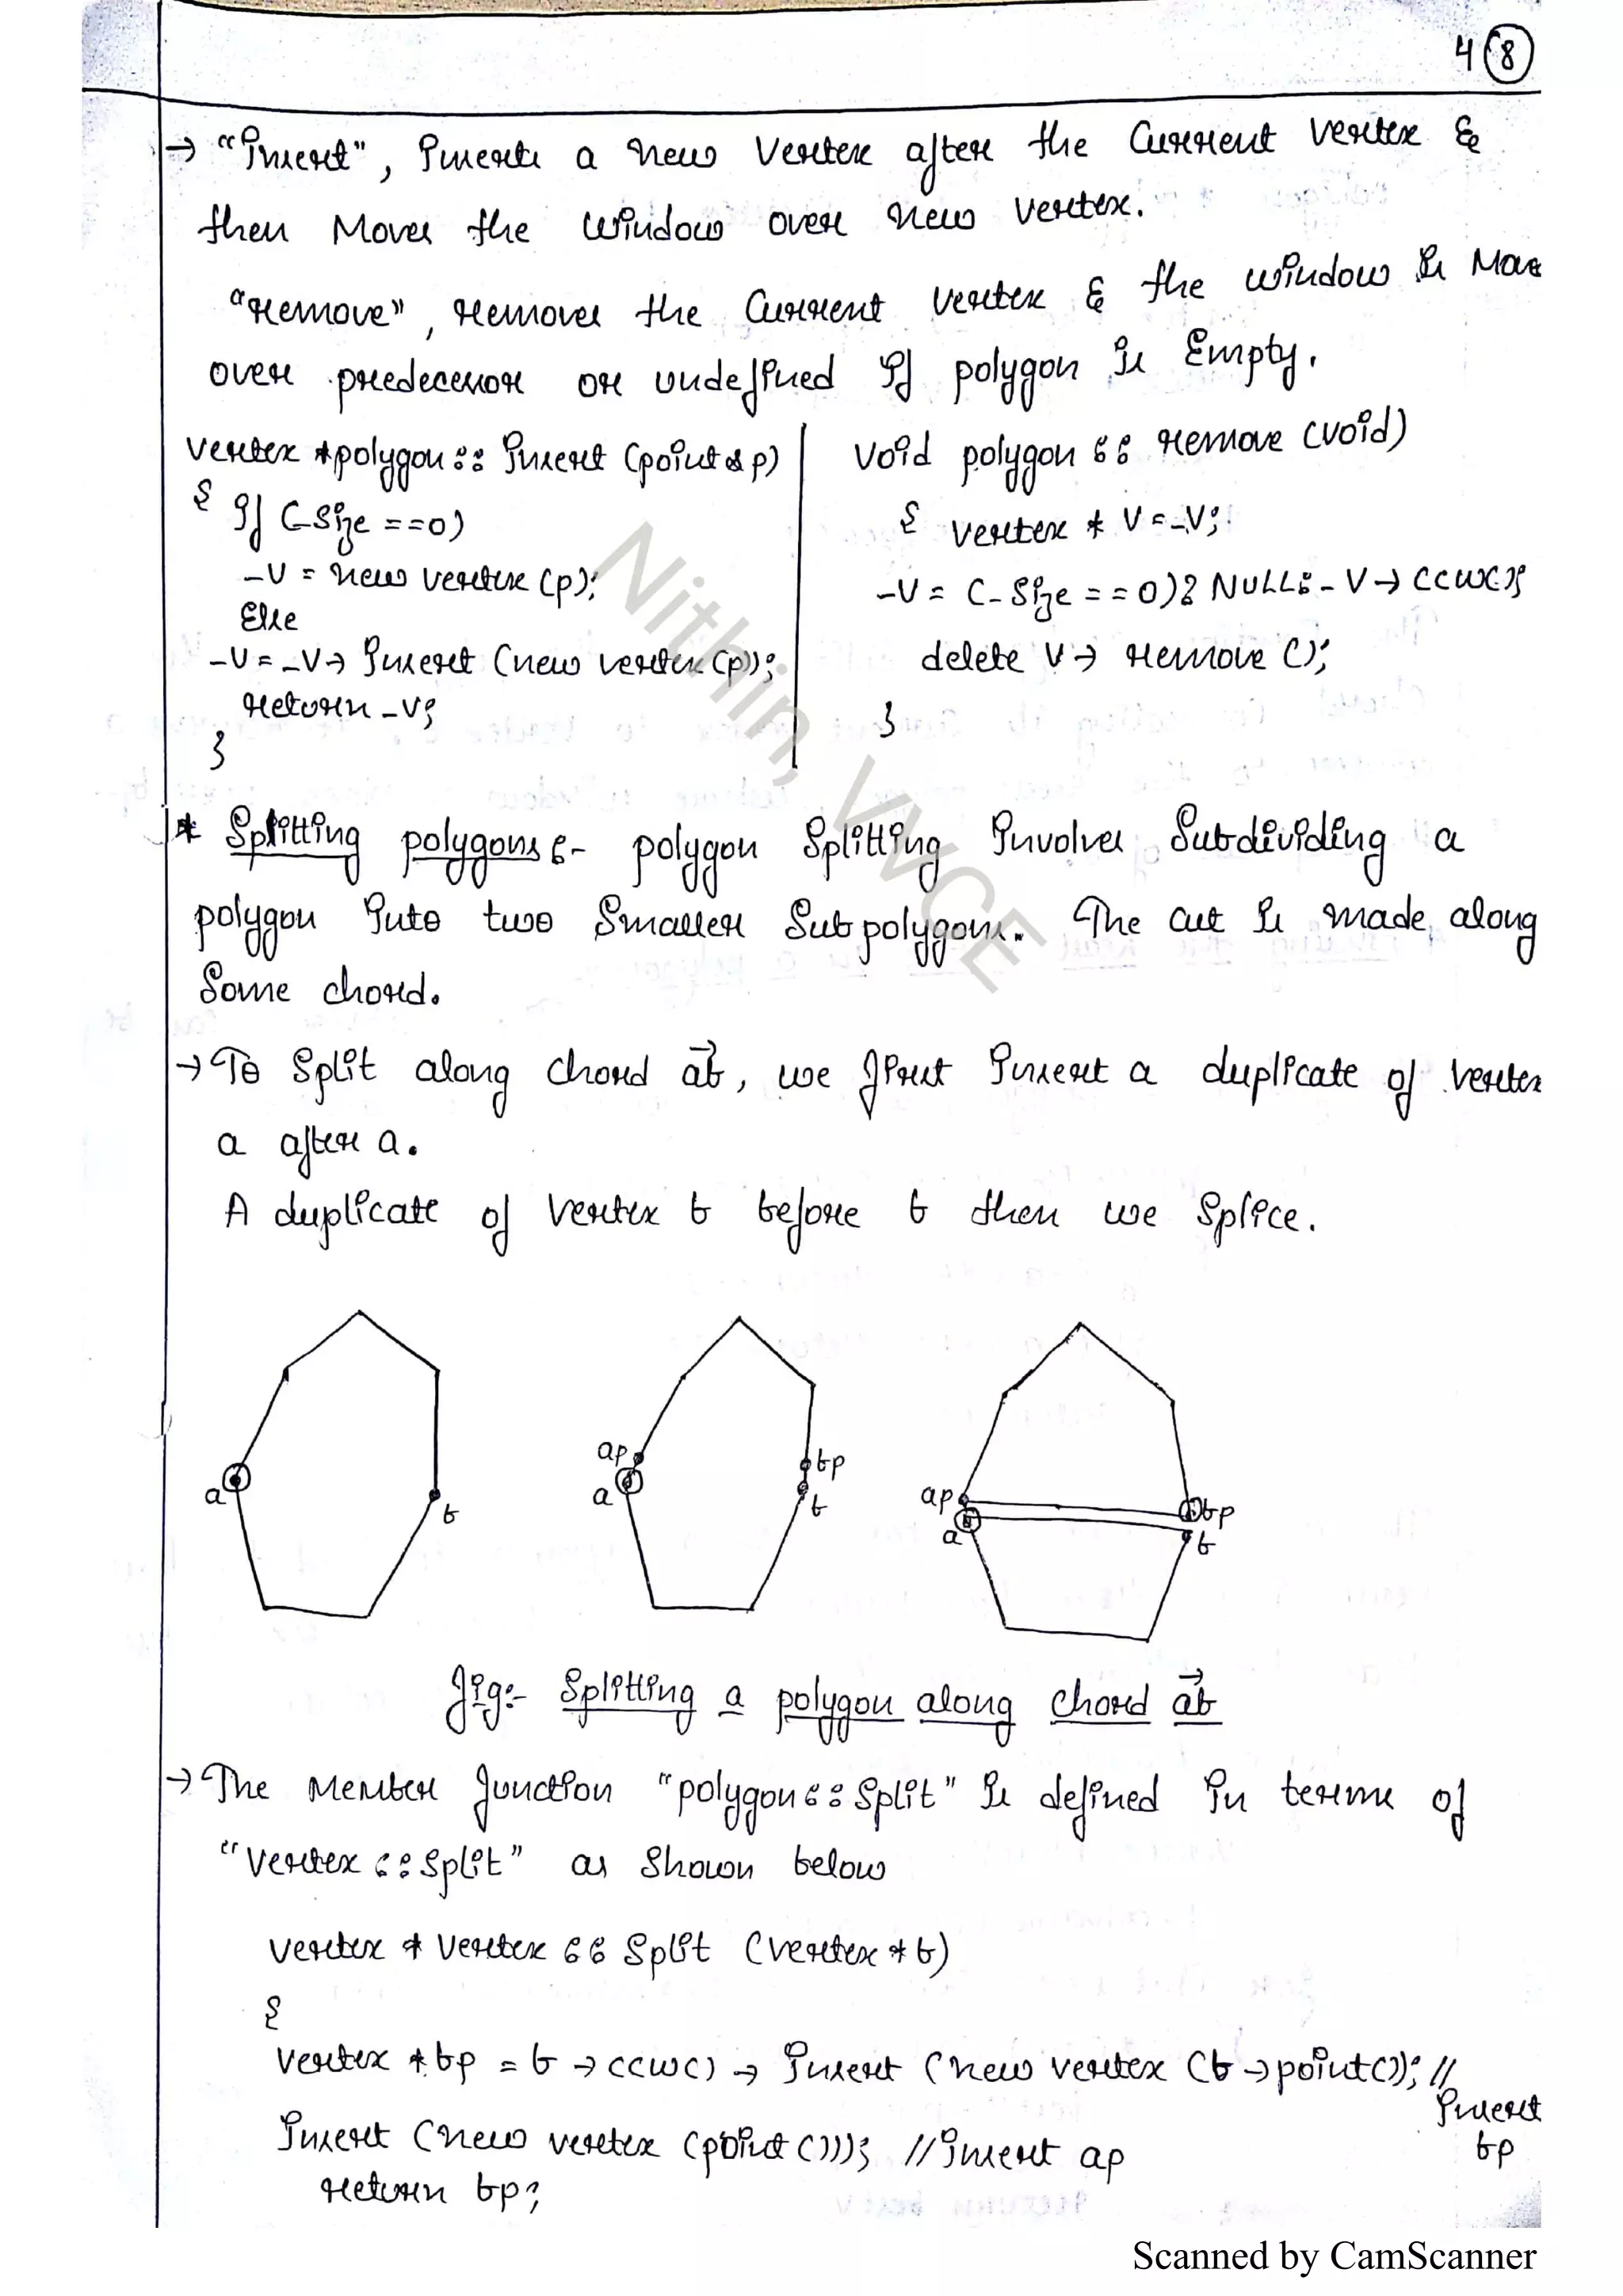 4 (8)
→ "Insert", Inserts a new Vertex after the Current Vertex &
then Moves the Window over new Vertex.
"remove", removes the Current Vertex & the window is Move
over predecessor or undefined If polygon is Empty.
Vertex *polygon :: Insert (point & p)
{ If (_size ==0)
_V = new Vertex (p);
Else
_V = _V → Insert (new Vertex (p));
return _V;
}
Void polygon :: remove (void)
{ Vertex * V = _V;
_V = (_size == 0) ? NULL : _V → ccw();
delete V → remove ();
}
* Splitting polygons :- polygon Splitting Involves Subdividing a
polygon Into two Smaller Subpolygons. The cut is made along
Some chord.
→ To Split along chord ab, we first Insert a duplicate of Vertex
a after a.
A duplicate of Vertex b before b then we Splice.
a b
ap a bp b
ap a bp b
fig:- Splitting a polygon along chord ab
→ The Member function "polygon :: Split" is defined In terms of
"Vertex :: Split" as Shown below
Vertex * Vertex :: Split (Vertex * b)
{
Vertex * bp = b → ccw() → Insert (new Vertex (b → point()); //
Insert
bp
Insert (new vertex (point ())); //insert ap
return bp;
Nithin, VVCE
Scanned by CamScanner